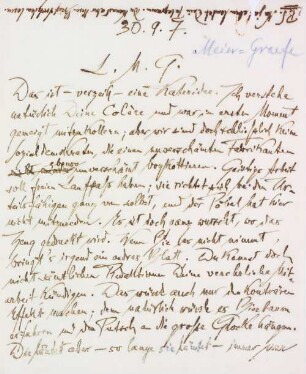 30.9.7.
Meier-Graefe
L. M. G.
Das ist – verzeih – eine Kateridee. Ich verstehe
natürlich Deine Colère und war im ersten Moment
geneigt mitzutrollen; aber wir sind doch schliesslich keine
Sozialdemokraten, die einen unverschämten Fabrikanten
ebenso unverschämt boykottieren. Geistige Arbeit
soll freien Lauf haben; sie richtet sich bei den
ganz von selbst, und der Pöbel hat hier
nicht mitzureden. Es ist doch ganz wurscht, wo das
Zeug gedruckt wird. Wenn Die es nicht nimmt,
bringt's irgend ein andres Blatt. Du kannst doch
nicht sämtlichen Redaktionen Deine verehrliche Mit-
arbeit kündigen. Das würde auch nur den konträren
Effekt machen; denn natürlich würde es
erfahren und den Putsch an die große Glocke hängen.
Der aber – so lange sie – immer